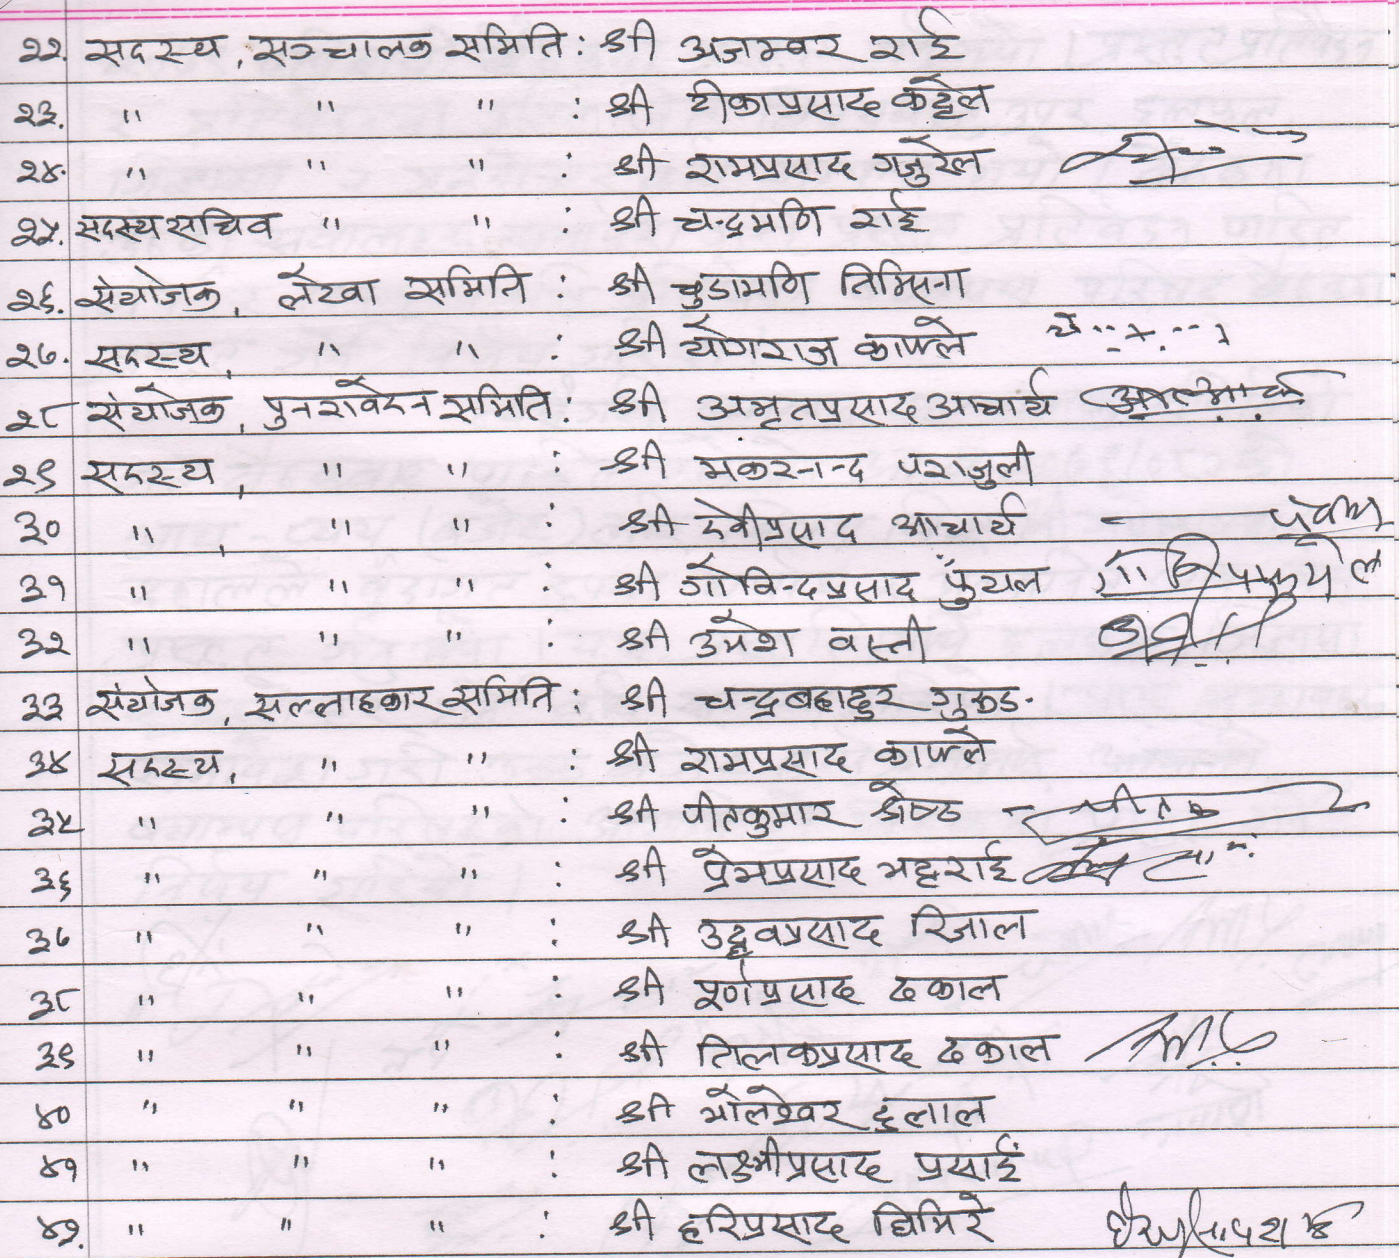 २२. सदस्य, सञ्चालक समिति : श्री अजम्वर राई
२३. " " " : श्री टीकाप्रसाद कट्टेल
२४. " " " : श्री रामप्रसाद गजुरेल
२५. सदस्यसचिव " " : श्री चन्द्रमणि राई
२६. संयोजक, लेखा समिति : श्री चुडामणि तिम्सिना
२७. सदस्य, " " : श्री योगराज काफ्ले
२८ संयोजक, पुनरावेदन समिति : श्री अमृतप्रसाद आचार्य
२९ सदस्य, " " : श्री मकरनन्द पराजुली
३० " , " " : श्री देवीप्रसाद आचार्य
३१ " " " : श्री गोविन्दप्रसाद पुँयल
३२ " " " : श्री उमेश वस्ती
३३ संयोजक, सल्लाहकार समिति : श्री चन्द्रबहादुर गुरुङ.
३४ सदस्य, " " : श्री रामप्रसाद काफ्ले
३५ " " " : श्री पीतकुमार श्रेष्ठ
३६ " " " : श्री प्रेमप्रसाद भट्टराई
३७ " " " : श्री उद्धवप्रसाद रिजाल
३८ " " " : श्री पूर्णप्रसाद ढकाल
३९ " " " : श्री तिलकप्रसाद ढकाल
४० " " " : श्री भोलेश्वर दुलाल
४१ " " " : श्री लक्ष्मीप्रसाद प्रसाईं
४२. " " " : श्री हरिप्रसाद घिमिरे